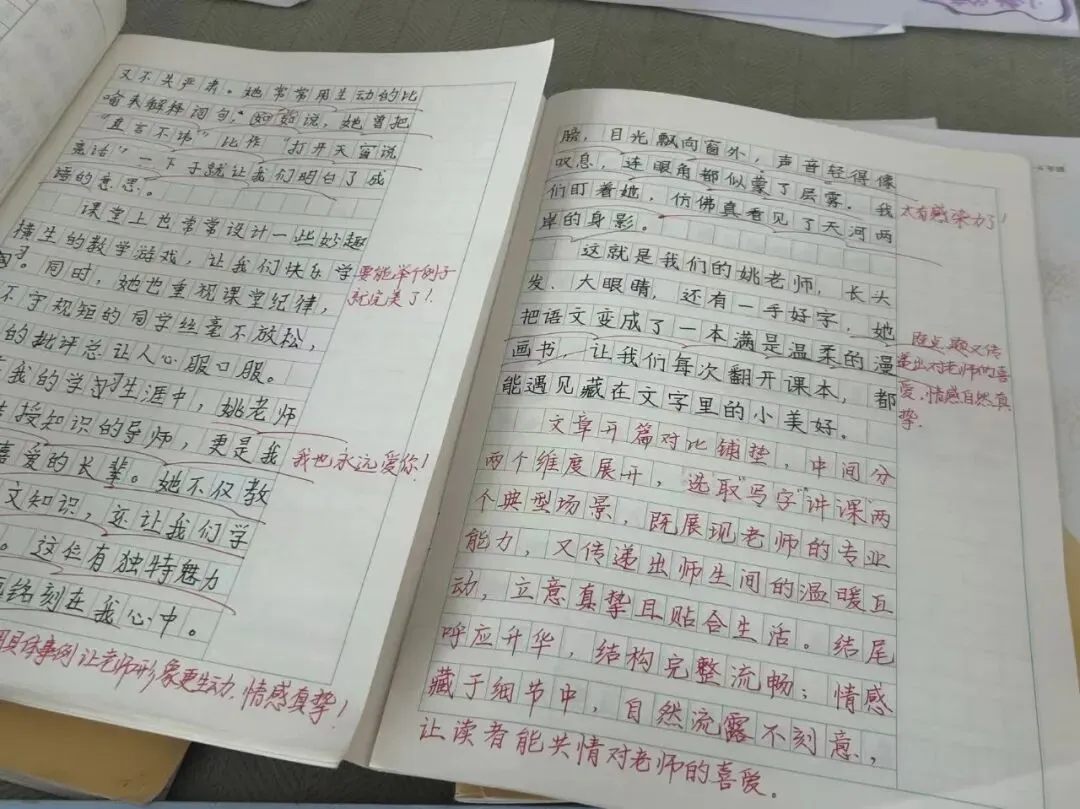 又不失严肃。她常常用生动的比
喻来解释词句,
说,她曾把
"直言不讳"比作"打开天窗说
亮话"一下子就让我们明白了成
语的意思。
课堂上也常常设计一些妙趣
横生的教学游戏,让我们快乐学
习。同时,她也重视课堂纪律,
要能举个例子
就完美了!
不守规矩的同学丝毫不放松,
的批评总让人心服口服。
我的学习生涯中,姚老师
授知识的导师,更是我
我也永远爱你!
喜爱的长辈。她不仅教
文知识,还让我们学
。这位有独特魅力
铭刻在我心中。
用具体事例让老师形象更生动,情感真挚!
膀,目光飘向窗外,声音轻得像
叹息,连眼角都似蒙了层雾。我
太有感染力了!
们盯着她,仿佛真看见了天河两
岸的身影。
这就是我们的姚老师,长头
发、大眼睛,还有一手好字,她
把语文变成了一本满是温柔的漫
画书,让我们每次翻开课本,都
能遇见藏在文字里的小美好。
题又传
递出对老师的喜
爱,情感自然真
挚。
文章开篇对比铺垫,中间分
两个维度展开,选取"写字""讲课"两
个典型场景,既展现老师的专业
能力,又传递出师生间的温暖互
动,立意真挚且贴合生活。结尾
呼应升华,结构完整流畅;情感
藏于细节中,自然流露不刻意,
让读者能共情对老师的喜爱。